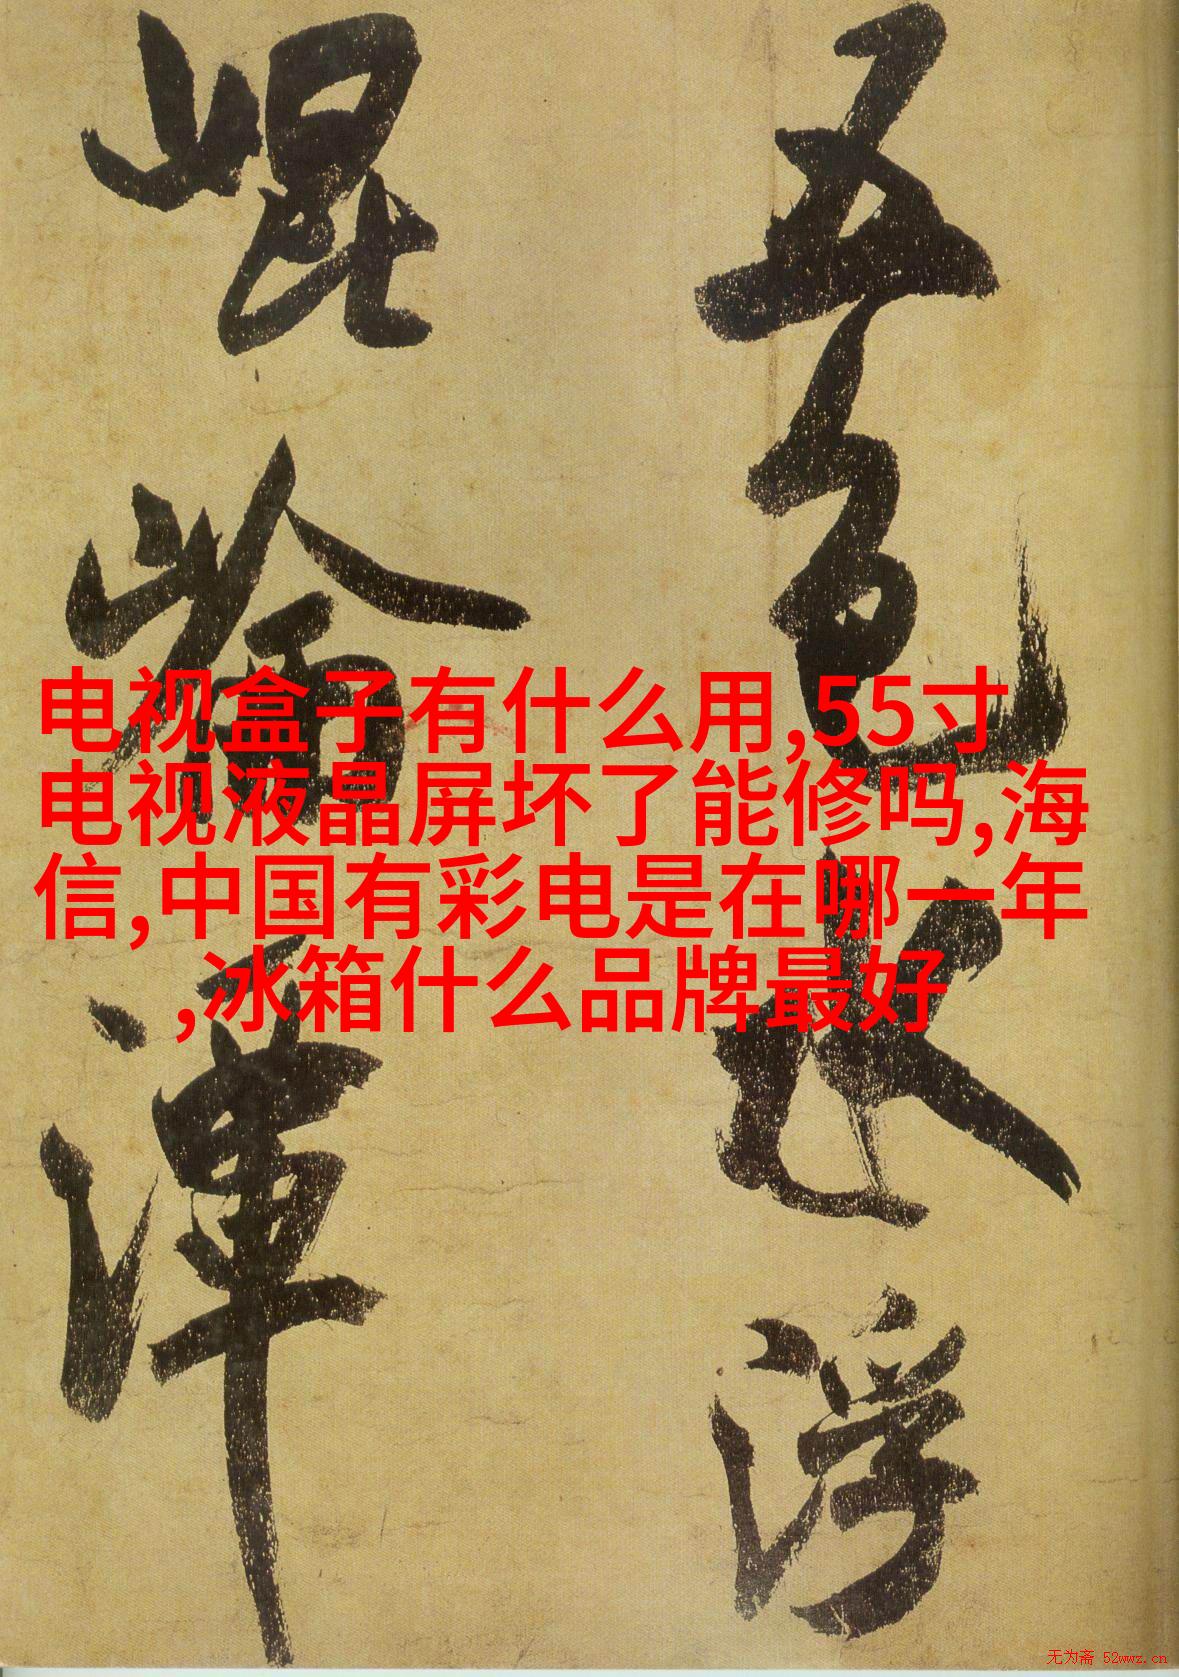 五色水浮
崐崘潭
电视盒子有什么用,55寸
电视液晶屏坏了能修吗,海
信,中国有彩电是在哪一年
,冰箱什么品牌最好
无为斋 52wwz.cn